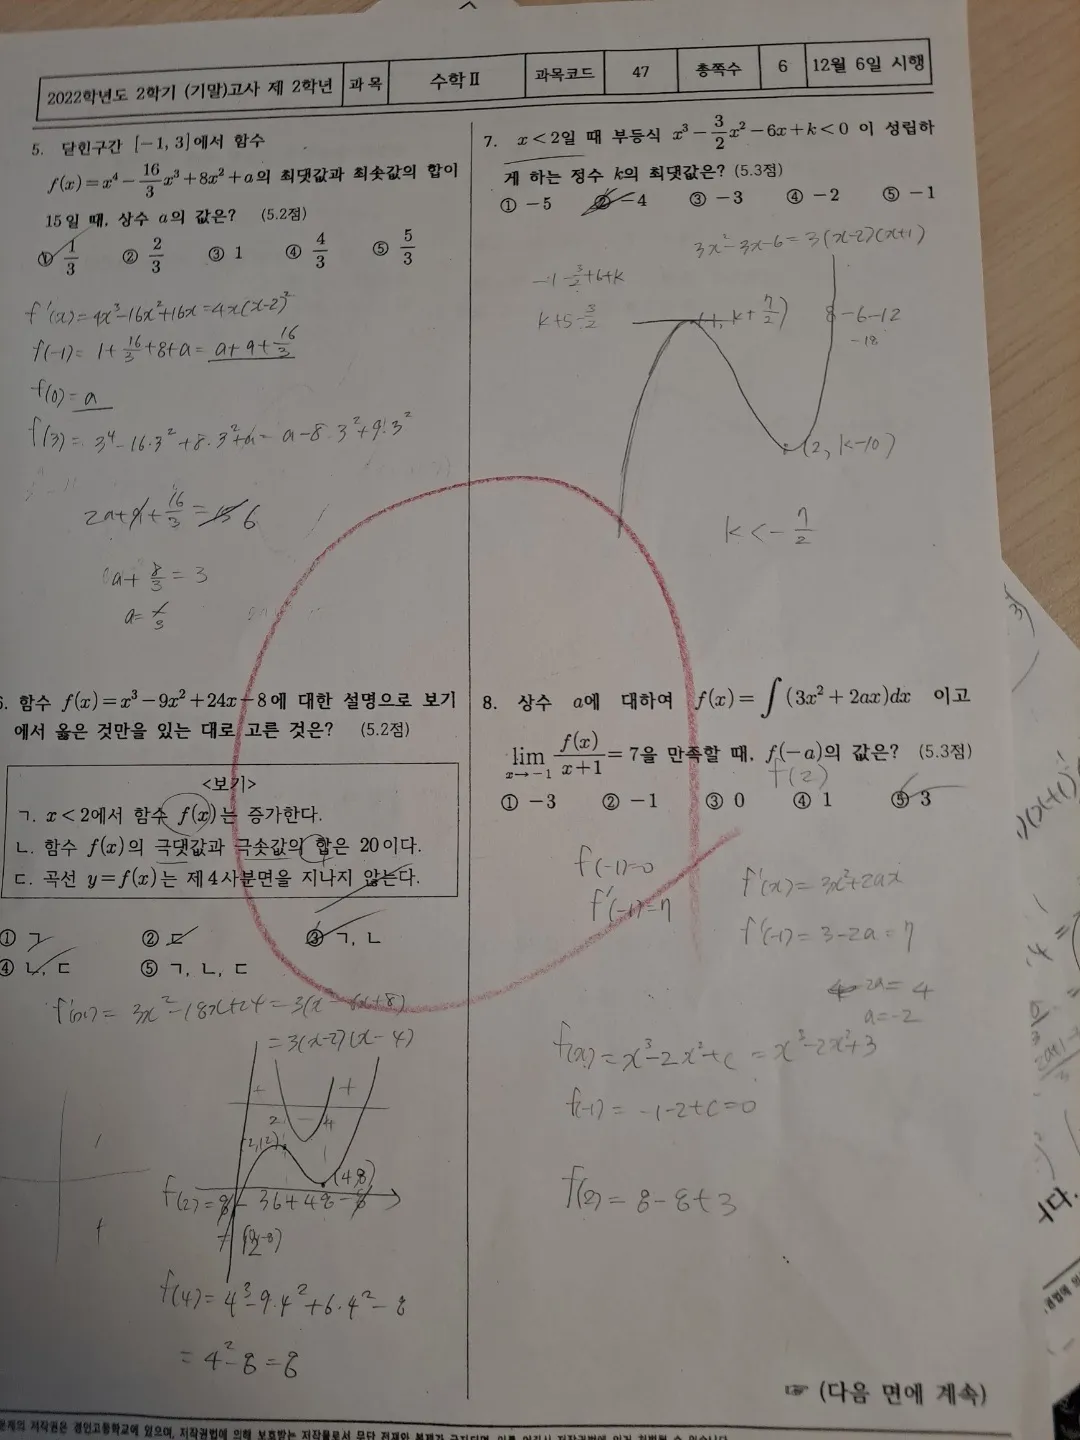 2022학년도 2학기 (기말)고사 제 2학년 과목 수학Ⅱ 과목코드 47 총쪽수 6 12월 6일 시행
5. 닫힌구간 [-1, 3]에서 함수
f(x)=x⁴-16/3x³+8x²+a의 최댓값과 최솟값의 합이
15일 때, 상수 a의 값은? (5.2점)
① 1/3 ② 2/3 ③ 1 ④ 4/3 ⑤ 5/3
f'(x)=4x³-16x²+16x=4x(x-2)²
f(-1)= 1+16/3+8+a= a+9+16/3
f(0)=a
f(3)= 3⁴-16·3²+8·3²+a= a-8·3²+9·3²
2a+9+16/3=15 6
a+8/3=3
a=1/3
6. 함수 f(x)=x³-9x²+24x-8에 대한 설명으로 보기
에서 옳은 것만을 있는 대로 고른 것은? (5.2점)
<보기>
ㄱ. x<2에서 함수 f(x)는 증가한다.
ㄴ. 함수 f(x)의 극댓값과 극솟값의 합은 20이다.
ㄷ. 곡선 y=f(x)는 제4사분면을 지나지 않는다.
① ㄱ ② ㄷ ③ ㄱ, ㄴ
④ ㄴ, ㄷ ⑤ ㄱ, ㄴ, ㄷ
f'(x)= 3x²-18x+24=3(x²-6x+8)
=3(x-2)(x-4)
+ +
2 - 4
(2,12)
(4,8)
f(2)=8-36+48-8
f(4)=4³-9·4²+6·4²-8
=4²-8=8
7. x<2일 때 부등식 x³-3/2x²-6x+k<0 이 성립하
게 하는 정수 k의 최댓값은? (5.3점)
① -5 ② -4 ③ -3 ④ -2 ⑤ -1
3x²-3x-6=3(x-2)(x+1)
-1-3/2+6+k
k+5-3/2
(-1, k+7/2)
8-6-12
-18
(2, k-10)
k<-7/2
8. 상수 a에 대하여 f(x)=∫(3x²+2ax)dx 이고
lim x→-1 f(x)/x+1=7을 만족할 때, f(-a)의 값은? (5.3점)
f(2)
① -3 ② -1 ③ 0 ④ 1 ⑤ 3
f(-1)=0
f'(-1)=7
f'(x)=3x²+2ax
f'(-1)=3-2a=7
-2a=4
a=-2
f(x)=x³-2x²+c=x³-2x²+3
f(-1)= -1-2+c=0
f(2)=8-8+3
☞ (다음 면에 계속)
문제의 저작권은 경인고등학교에 있으며, 저작권법에 의해 보호받는 저작물로서 무단 전재와 복제가 금지되며,